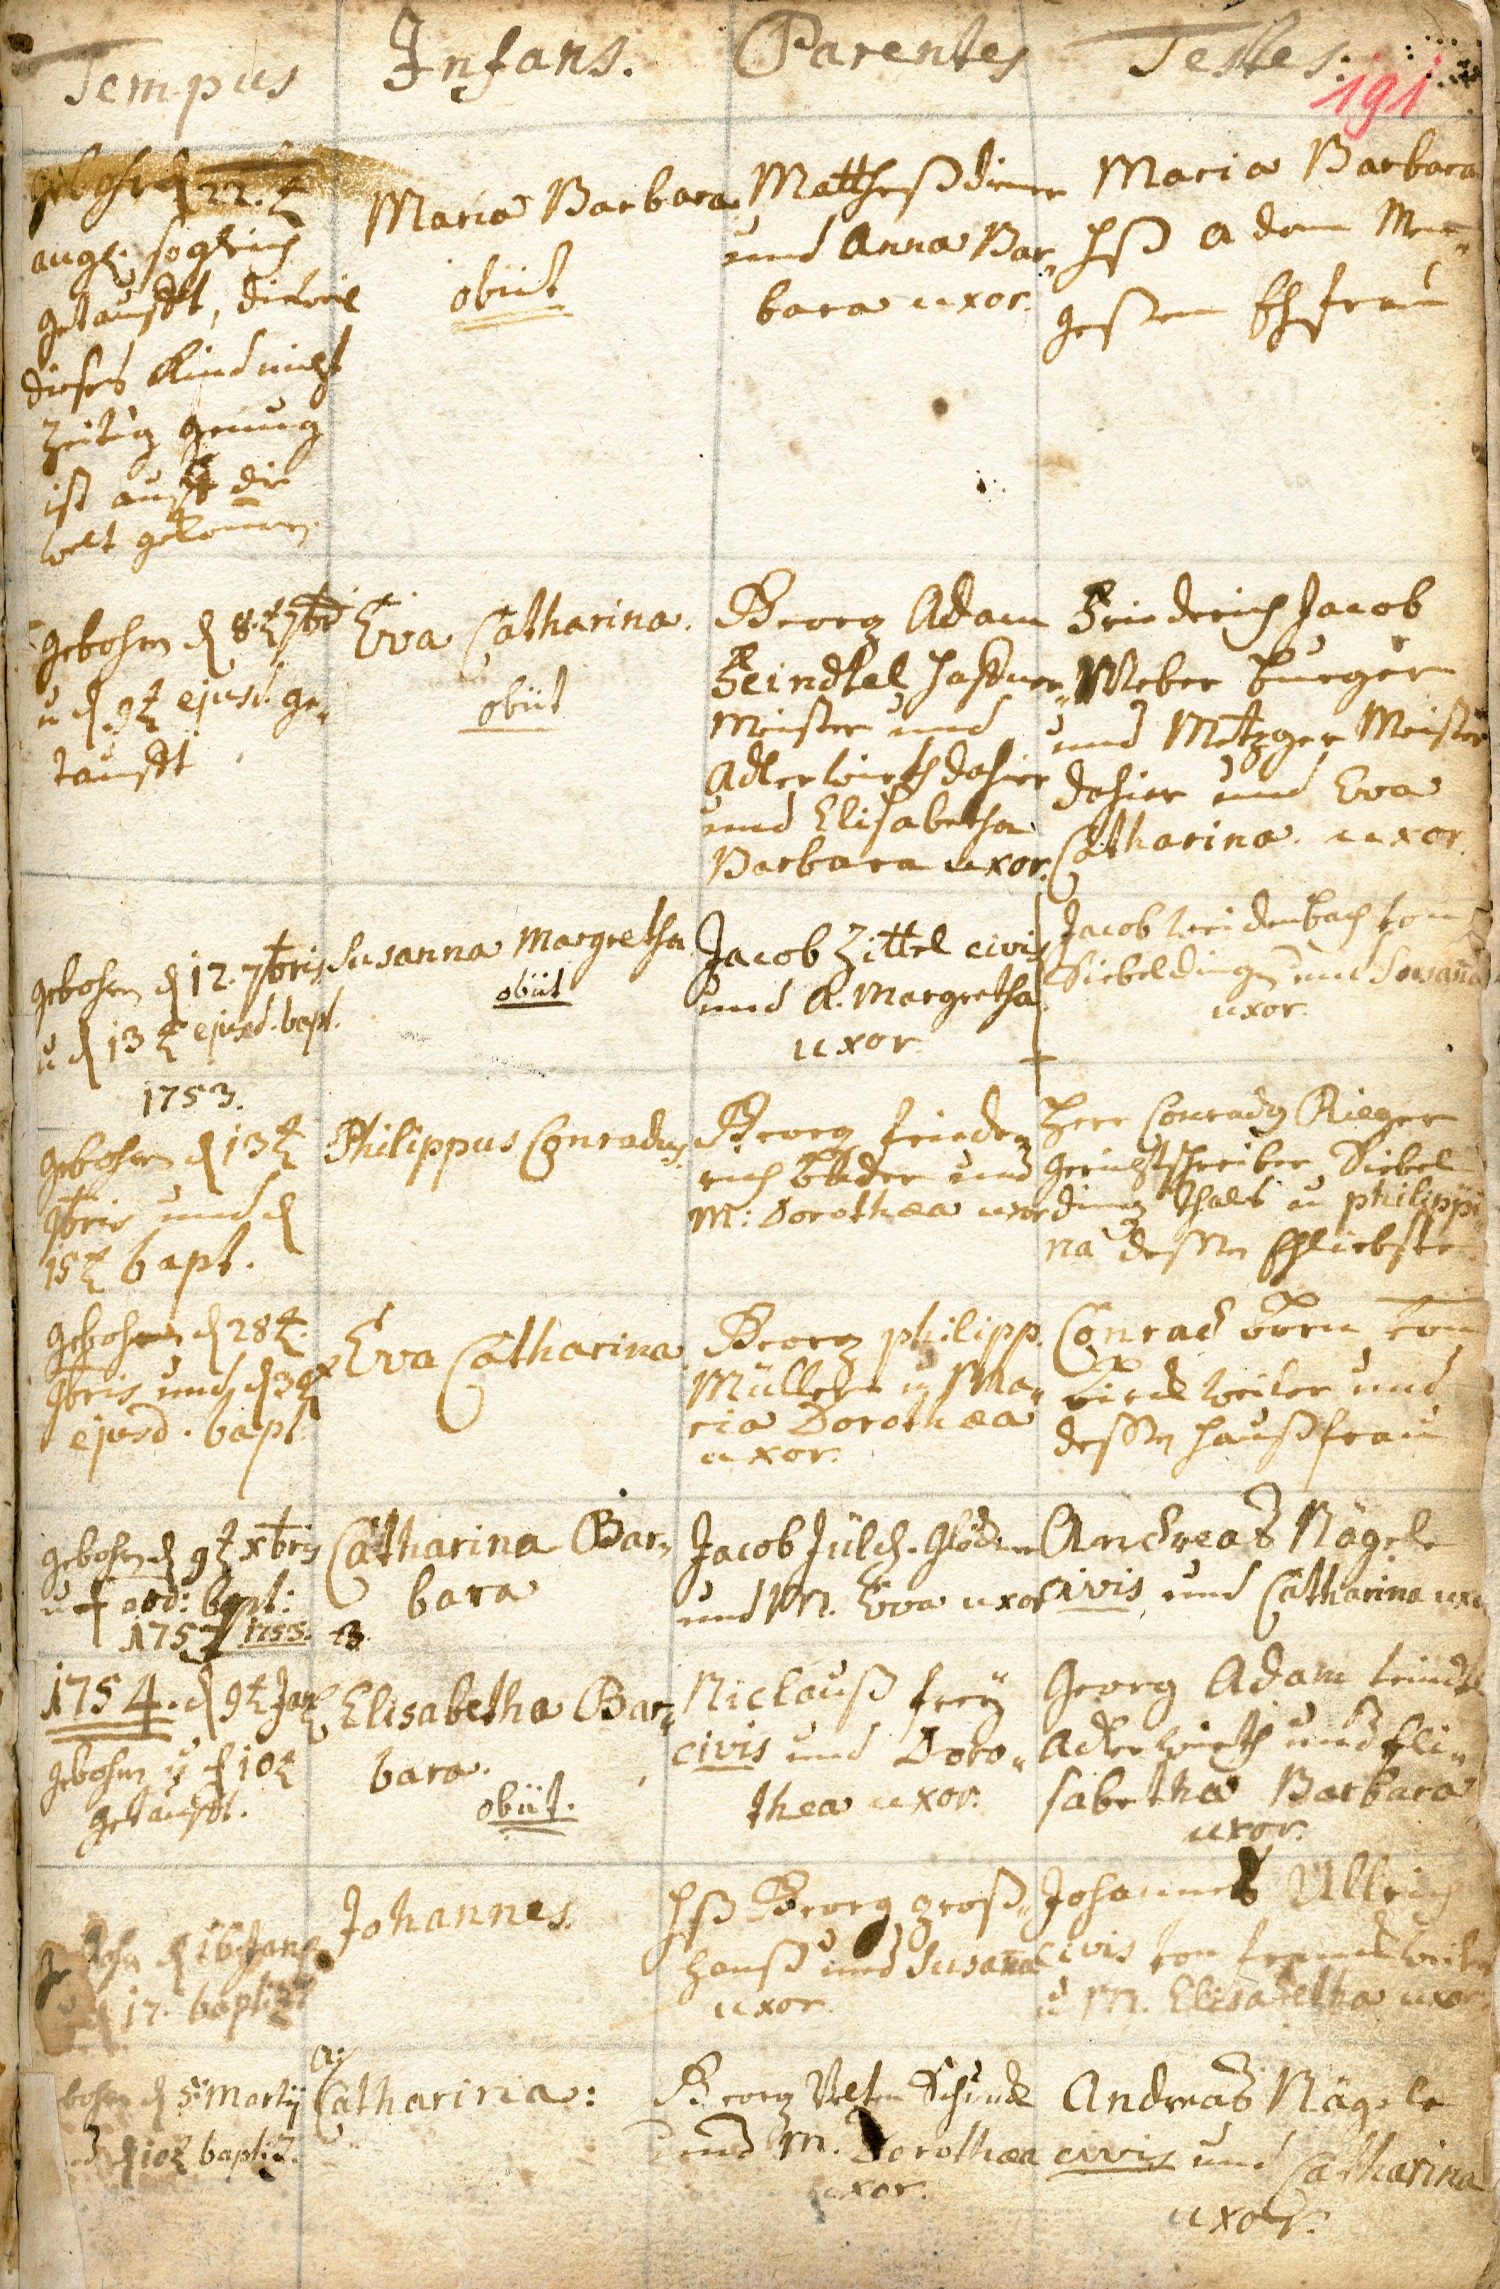 Tempus Infans. Parentes Testes.
191
gebohrn d 22. t
aug. sogleich
getaufft, dieweil
dieses Kind nicht
zeitig genug
ist auff die
welt gekommen
Maria Barbara
obiit
Mattheß diener
und Anna Bar„
bara uxor.
Maria Barbara
Hß Adam
Ehfrau
gebohrn d 8t 7br
u d 9t ejusd. ge„
taufft
Eva Catharina.
obiit
Georg Adam
Feindtel Haffner„
Meister und
Adlerwirth dahier
und Elisabetha
Barbara uxor.
Friederich Jacob
Weber burger
und Metzger Meister
dahier und Eva
Catharina uxor.
gebohrn d 12. 7bris
u d 13t ejusd. bapt.
1753.
Susanna Margretha
obiit
Jacob Zittel civis
und A. Margretha
uxor
Jacob Weidenbach von
Siebeldingen und Susanna
uxor.
gebohrn d 13t
9bris und d
15t bapt.
Philippus Conradus.
Georg Friede„
rich Bader und
M: Dorothæa uxor
Herr Conrady Rieger
gerichtschreiber Siebel
dinger thals u philippi„
na dessen Ehliebste
gebohrn d 28t.
9bris und d 30t
ejusd. bapt.
Eva Catharina
Georg philipp.
Müller u Ma„
ria Dorothæa
uxor.
Conrad Born von
Birckweiler und
dessen haußfrau
gebohrn d 9t xbris
u eod: bapt:
1753. 1753.
3.
Catharina Bar„
bara
Jacob Jülch. Glöckner
und M. Eva uxor
Andreas Nägele
civis und Catharina uxor
1754. d 9t Jan
gebohrn u d 10t
getaufft.
Elisabetha Bar„
bara.
obiit.
Niclauß Frey
civis und Doro„
thea uxor.
Georg Adam feindtel
Adlerwirth und Eli„
sabetha Barbara
uxor.
d 16 Jan
17. baptiz
Johannes.
Hß Georg Groß„
hanß und Susanna
uxor.
Johannes Ullrich
civis von franckweiler
u M. Elisabetha uxor
bohrn d 5. Martij
d 10t baptiz.
A:
Catharina:
Georg Velten Schunck
und M. Dorothæa
uxor.
Andreas Nägele
civis und Catharina
uxor.